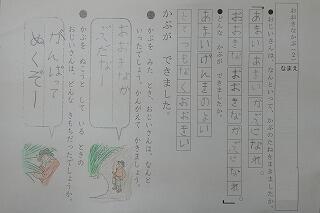 おおきなかぶ(2)
なまえ
●おじいさんは、なんといって、かぶのたねをまきましたか。
「あまいあまいかぶになれ。
おおきなおおきなかぶになれ。」
●どんな かぶが できましたか。
あまいげんきのよい
とてつもなくおおきい
かぶが できました。
●かぶを みた とき、おじいさんは、なんと
いったでしょう。かんがえて かきましょう。
おおきなか
ぶだな
●かぶを ぬこうと して いる ときの
おじいさんは、どんな きもちだったでしょうか。
がんばって
ぬくぞー